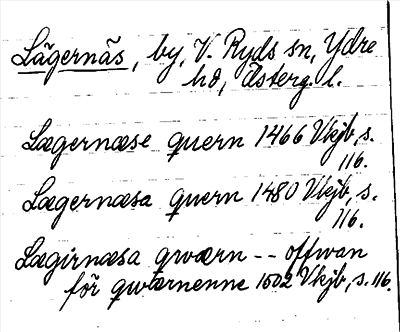 Lägernäs, by, V. Ryds sn, Ydre
hd, Österg. l.
Lægernæse quern 1466 Vkjb, s.
116.
Lægernæsa quern 1480 Vkjb, s.
116.
Lægirnæsa qwærn -- offwan
för qwærnenne 1502 Vkjb, s. 116.